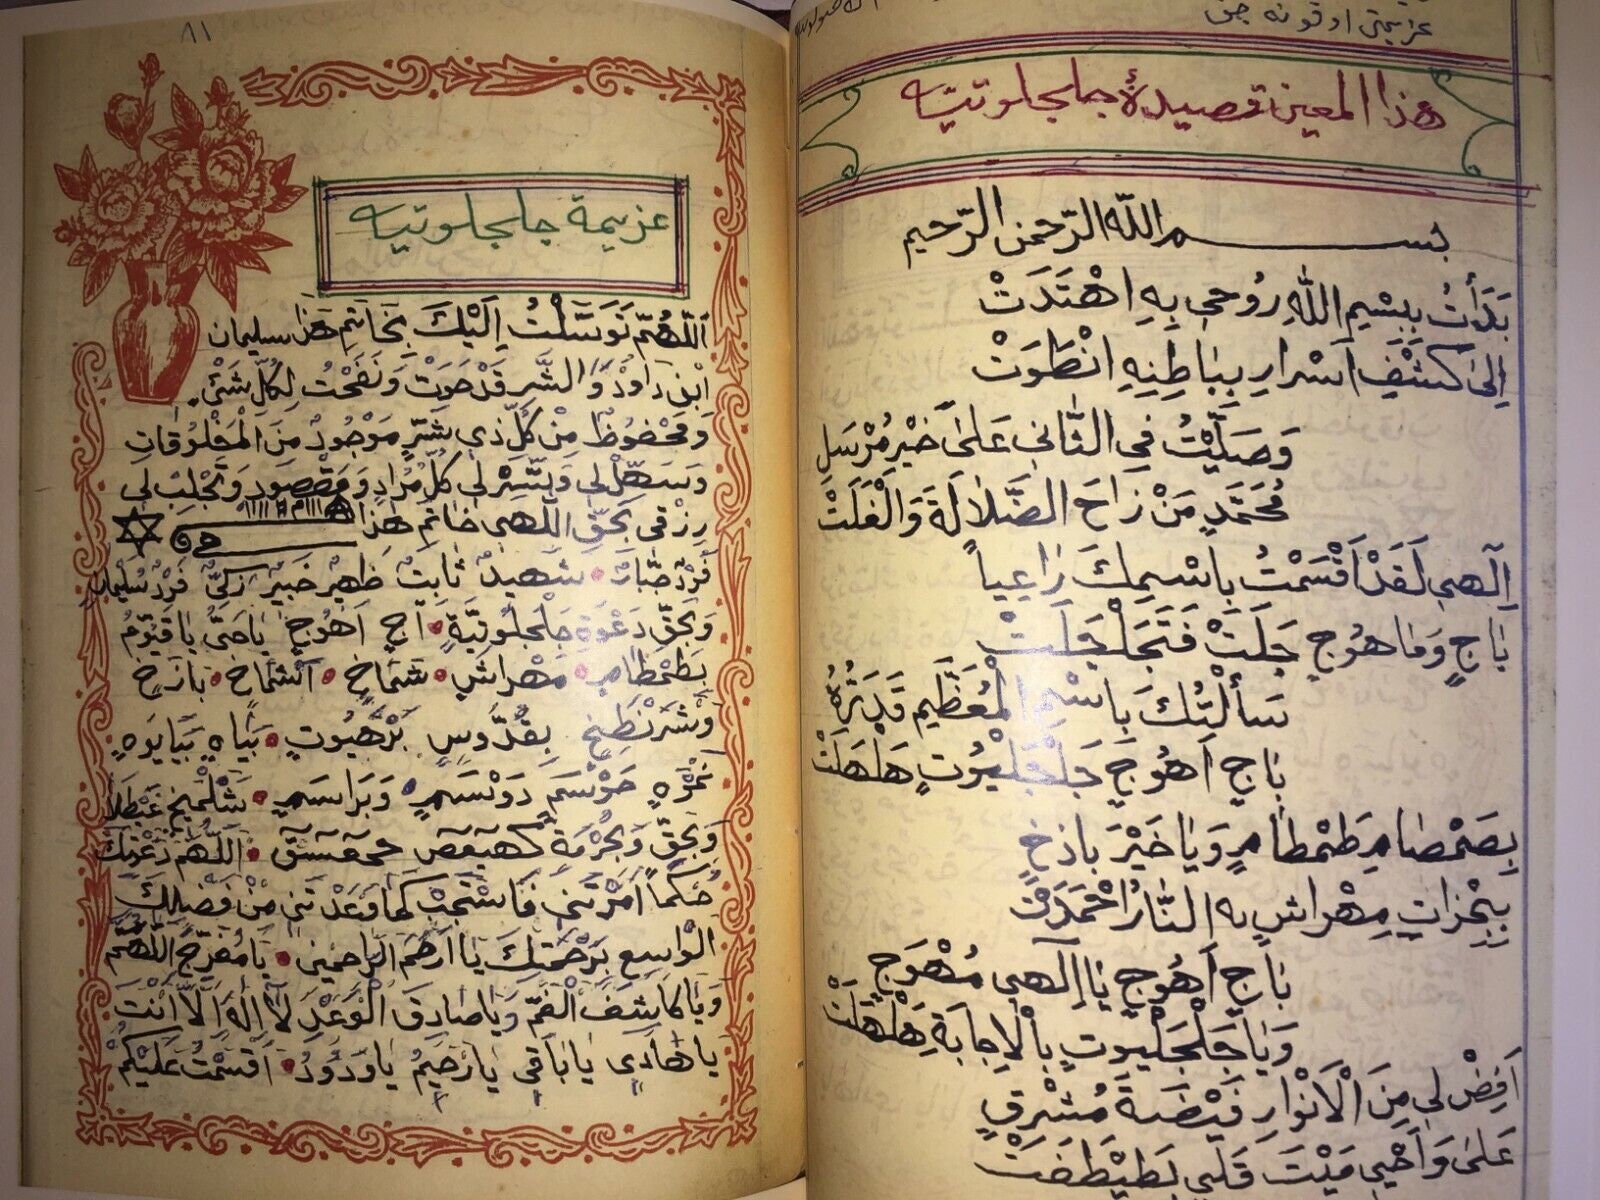 عزيمتى اوقونه جق
هذا المعين قصيدۀ جلجلوتيه
بســـم الله الرّحمن الرّحيم
بَدَأْتُ بِبِسْمِ اللّٰهِ رُوحِى بِهِ اهْتَدَتْ
اِلىٰ كَشْفِ اَسْرَارٍ بِبَاطِنِهِ انْطَوَتْ
وَصَلَّيْتُ فِى الثَّانِى عَلىٰ خَيْرِ مُرْسَلٍ
مُحَمَّدٍ مَنْ زَاحَ الضَّلَالَةَ وَالْغَلَتْ
اِلٰهِى لَقَدْ اَقْسَمْتُ بِاسْمِكَ دَاعِياً
بَاجٍ وَمَاهُوجٍ جَلَتْ فَتَجَلْجَلَتْ
سَأَلْتُكَ بِاسْمِ الْمُعَظَّمِ قَدْرُهُ
بَاجٍ اَهُوجٍ جَلْجَلْيُوتٍ هَلْهَلَتْ
بِصَمْصَامِ طَمْطَامٍ وَيَا خَيْرَ بَاذِخٍ
بِمِهْرَاشٍ بِهِ النَّارُ اخْمَدَتْ
بَاجٍ اَهُوجٍ يَا اِلٰهِى مُهَوِّجٍ
وَيَا جَلْجَلْيُوتٍ بِالْاِجَابَةِ هَلْهَلَتْ
اَفِضْ لِى مِنَ الْاَنْوَارِ فَيْضَةَ مُشْرِقٍ
عَلَىَّ وَاَحْيِى مَيْتَ قَلْبِى بِطَيْطَغَتْ
٨١
عزيمة جلجلوتيه
اَللّٰهُمَّ تَوَسَّلْتُ اِلَيْكَ بِخَاتَمِ هٰذَا سليمان
ابْن دَاوُدْ وَالشَّر قَدْ حَوَتْ وَنَفَخْتُ لِكُلِّ شَىْءْ
وَمَحْفُوظْ مِنْ كُلِّ ذِى شَرٍّ مَوْجُودٌ مِنَ الْمَخْلُوقَاتِ
وَسَهِّلْ لِى وَيَسِّرْ لِى كُلَّ مُرَادٍ وَمَقْصُودٍ وَتَجْلِبْ لِى
رِزْقِى بِحَقِّ اللٰهِى خَاتَم هٰذَا
فَرْدٌ جَبَّارٌ • شَهِيدٌ ثَابِتٌ ظَهِيرٌ خَبِيرٌ زَكِىٌّ فَرْدٌ سُلَيْمَان
وَبِحَقِّ دَعْوَةِ جَلْجَلُوتِيَّةٍ • اَجٍ اَهُوجٍ يَاحَىُّ يَاقَيُّومُ
بِطَمْطَامٍ • مَهْرَاشٍ • شَمَاخٍ • اَشْمَاخٍ • بَازَخٍ
وَشَرَنْطَخٍ بِقُدُّوسٍ بَرْهَيُوتٍ • بَيَاهٍ بَيَايُوهٍ
نَمُوَهٍ حَوْسَمٍ دَوْسَمٍ • وَبَرَاسَمٍ •
وَبِحَقِّ وَبِحُرْمَةِ كهيعص حمعسق • اَللّٰهُمَّ دَعَوْتُكَ
كَمَا اَمَرْتَنِى فَاسْتَجِبْ كَمَا وَعَدْتَنِى مِنْ فَضْلِكَ
الْوَاسِعِ بِرَحْمَتِكَ يَا اَرْحَمَ الرَّاحِمِينَ • يَا مُفَرِّجَ الْهَمِّ
وَيَا كَاشِفَ الْغَمِّ وَيَا صَادِقَ الْوَعْدِ لَا اِلٰهَ اِلَّا اَنْتَ
يَا هَادِى يَا بَاقِى يَا رَحِيمُ يَا وَدُودُ • اَقْسَمْتُ عَلَيْكُمْ